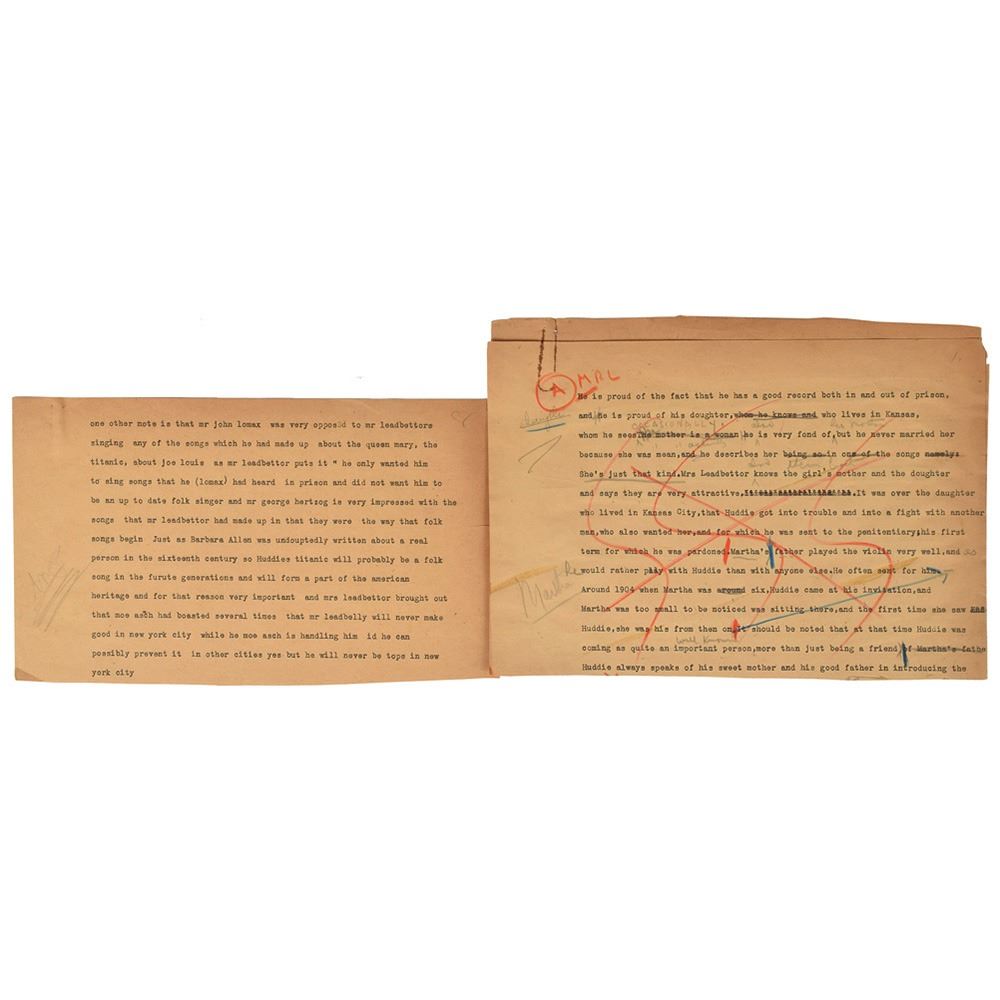 one other note is that mr john lomax was very opposed to mr leadbettors
singing any of the songs which he had made up about the queen mary, the
titanic, about joe louis as mr leadbettor puts it " he only wanted him
to sing songs that he (lomax) had heard in prison and did not want him to
be an up to date folk singer and mr george hertzog is very impressed with the
songs that mr leadbettor had made up in that they were the way that folk
songs begin Just as Barbara Allen was undouptedly written about a real
person in the sixteenth century so Huddies titanic will probably be a folk
song in the furute generations and will form a part of the american
heritage and for that reason very important and mrs leadbettor brought out
that moe asch had boasted several times that mr leadbelly will never make
good in new york city while he moe asch is handling him id he can
possibly prevent it in other cities yes but he will never be tops in new
york city
1.
A MRL
He is proud of the fact that he has a good record both in and out of prison,
daughter
and he is proud of his daughter, whom he knows and who lives in Kansas,
OCCASIONALLY. also his mother
whom he sees. he mother is a woman he is very fond of, but he never married her
because she was mean, and he describes her being so in one of the songs namely:
She's just that kind. Mrs Leadbettor knows the girl's mother and the daughter
and says they are very attractive. It was over the daughter
who lived in Kansas City, that Huddie got into trouble and into a fight with another
man, who also wanted her, and for which he was sent to the penitentiary; his first
term for which he was pardoned. Martha's father played the violin very well, and
Martha
would rather play with Huddie than with anyone else. He often sent for him.
Around 1904 when Martha was around six, Huddie came at his invitation, and
Martha was too small to be noticed was sitting there, and the first time she saw
Huddie, she was his from then on. It should be noted that at that time Huddie was
well known
coming as quite an important person, more than just being a friend of Martha's fathe
Huddie always speaks of his sweet mother and his good father in introducing the